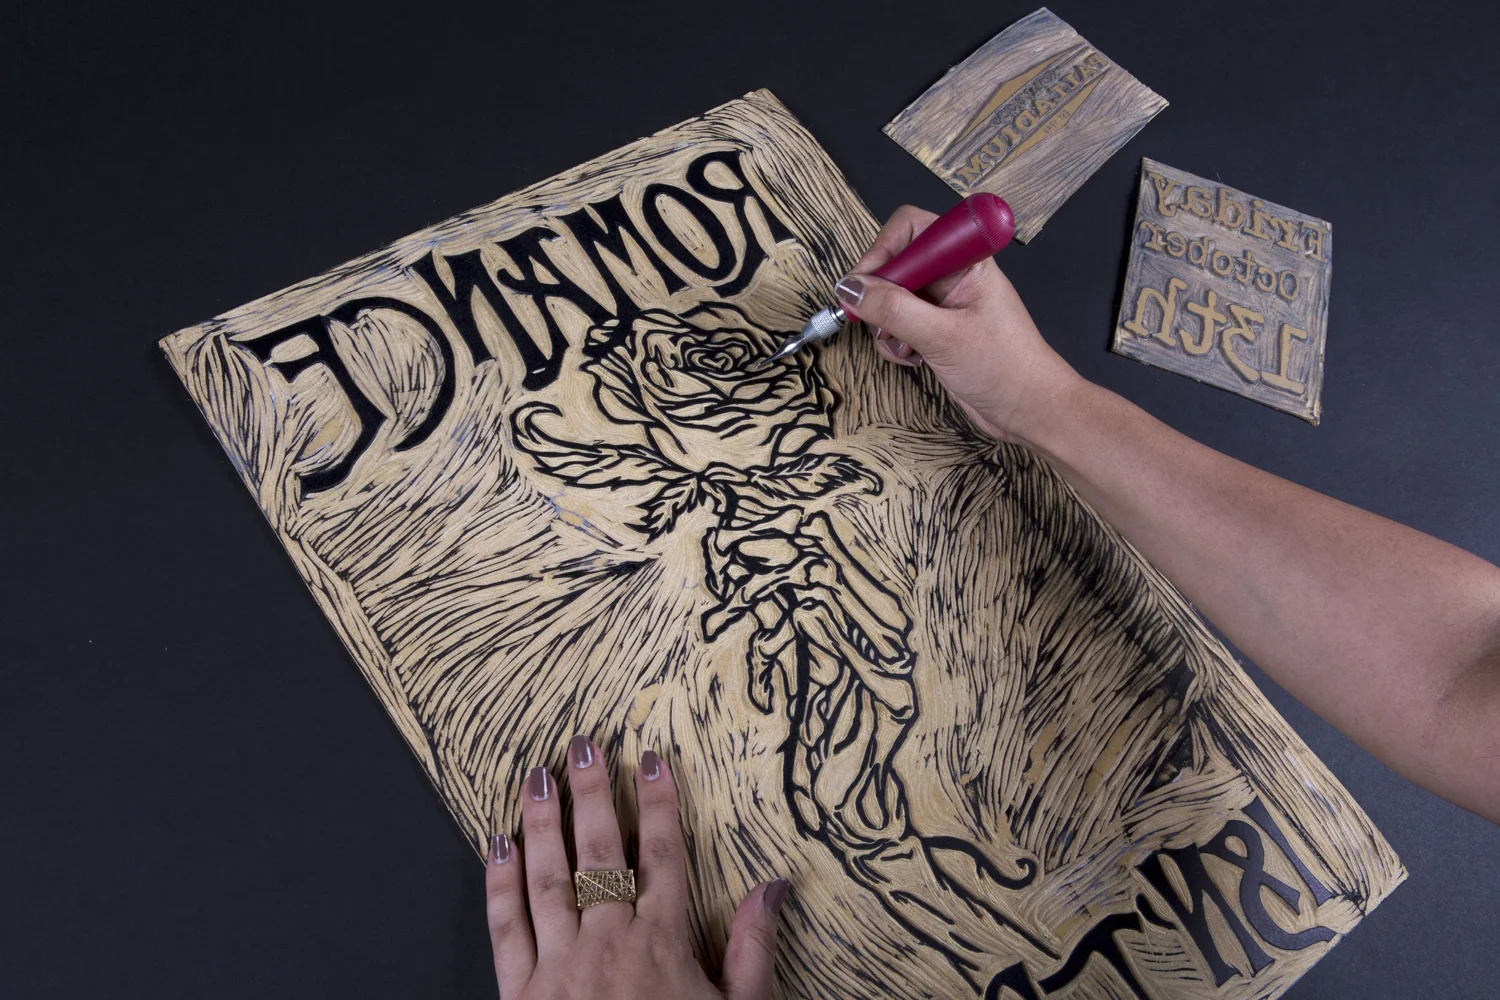 ROMANCE
ISN'T
PALLADIUM
Friday
October
13th